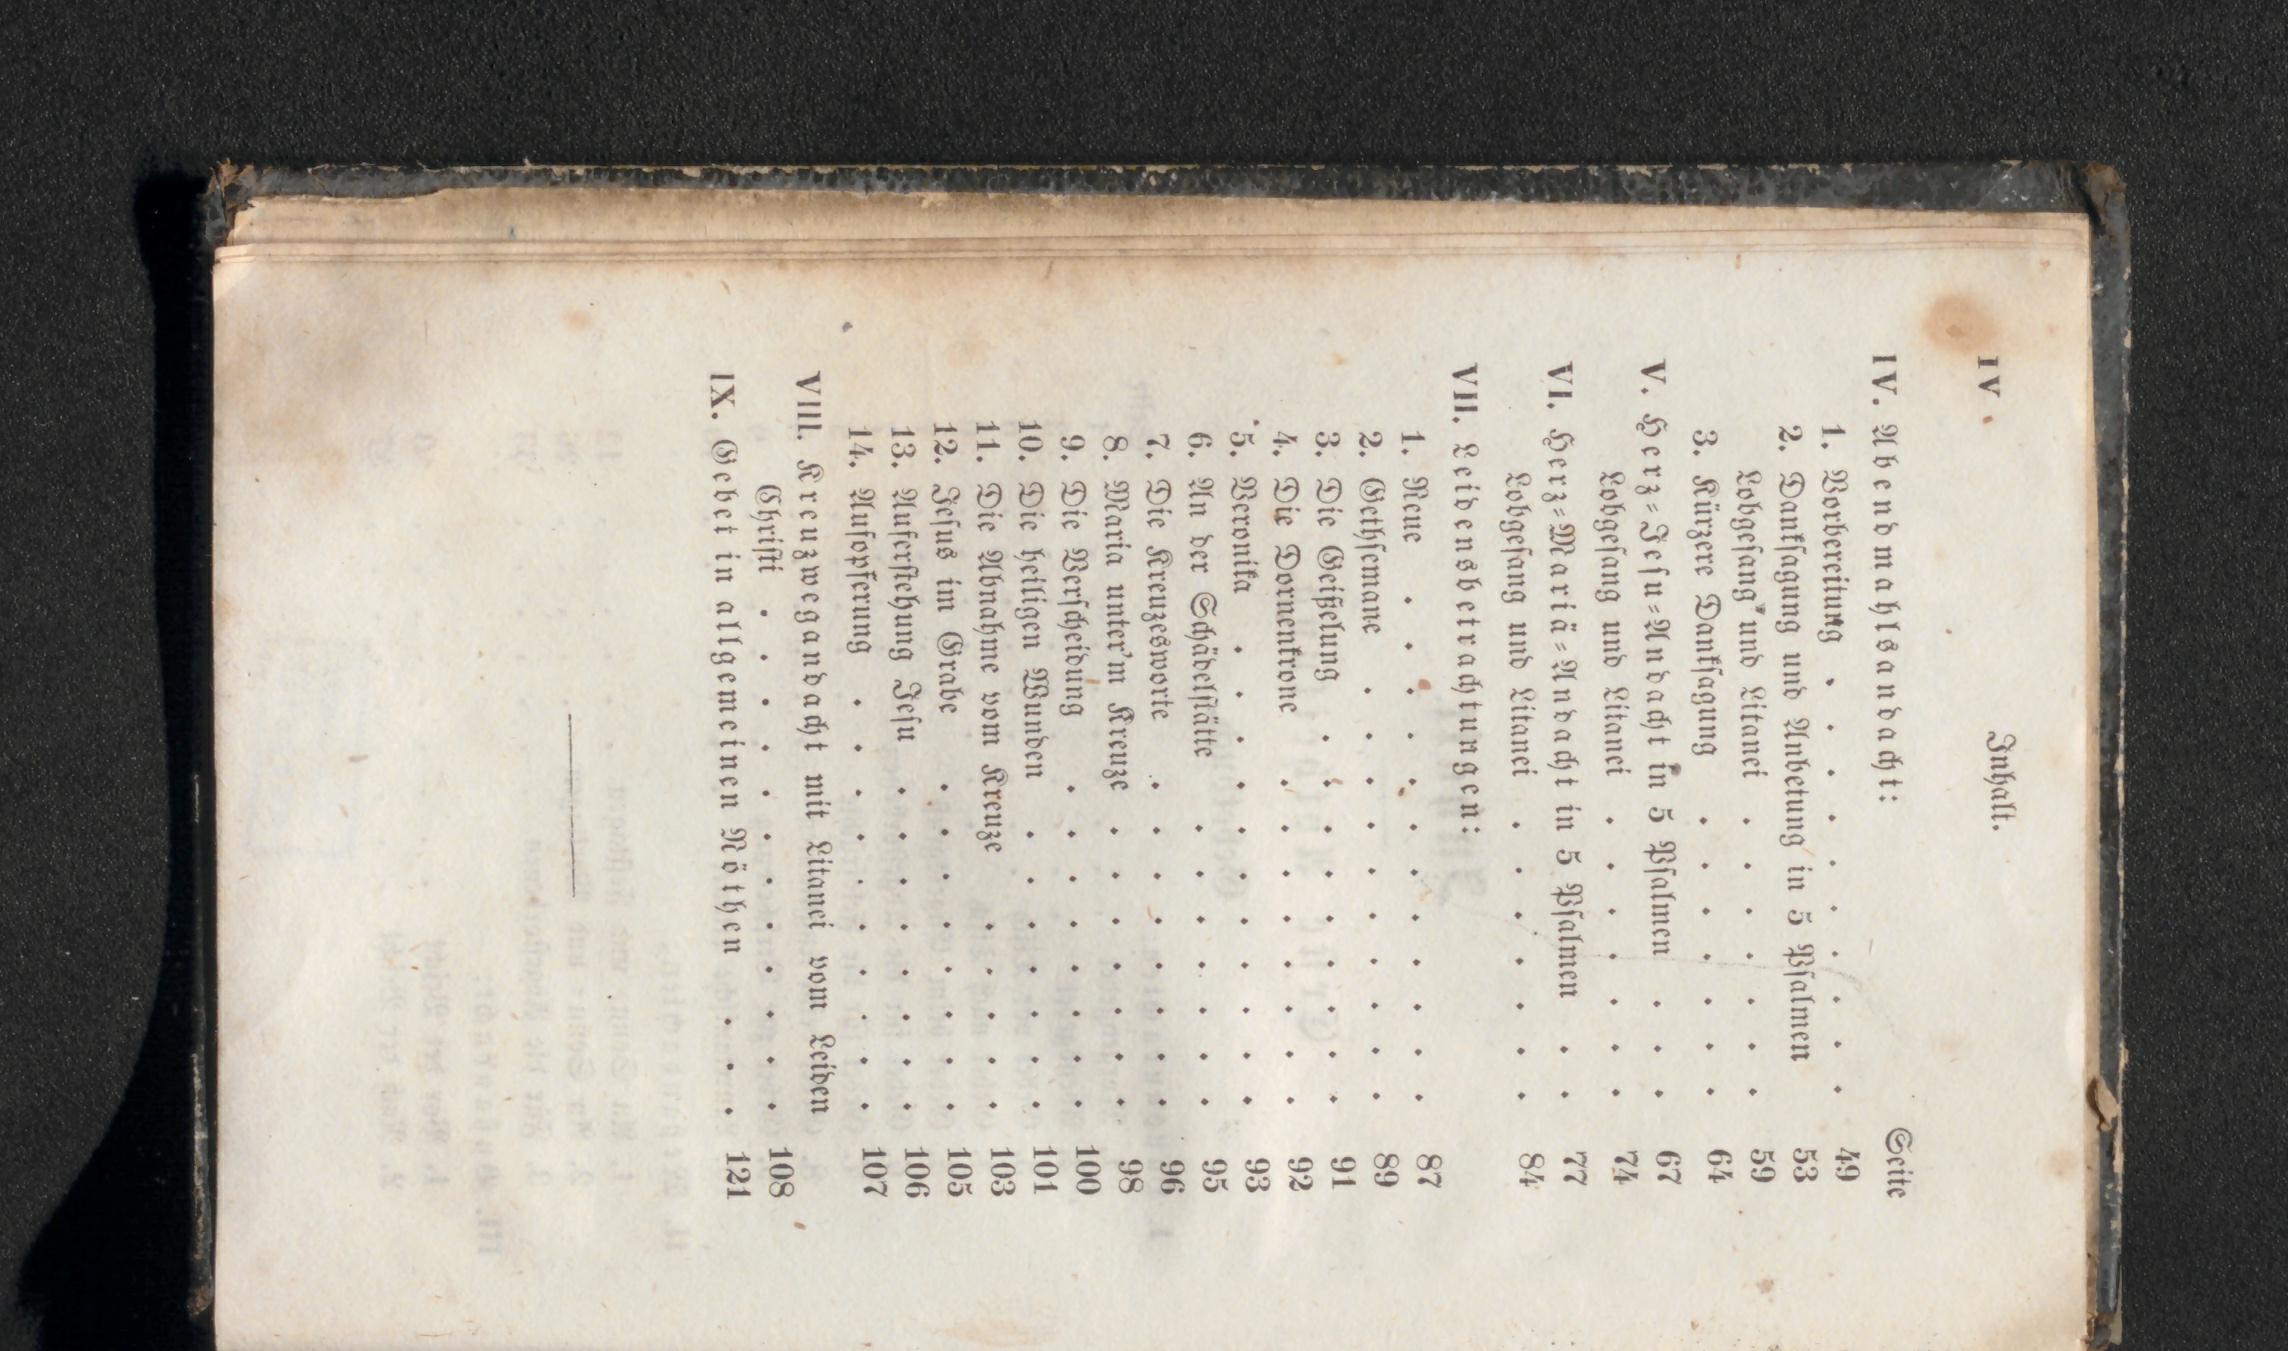 IV
Inhalt.
Seite
IV. Abendmahlsandacht:
1. Vorbereitung . . . . . . . . . . 49
2. Danksagung und Anbetung in 5 Psalmen 53
Lobgesang und Litanei . . . . . . . 59
3. Kürzere Danksagung . . . . . . . 64
V. Herz-Jesu-Andacht in 5 Psalmen . . . 67
Lobgesang und Litanei . . . . . . . 74
VI. Herz-Mariä-Andacht in 5 Psalmen . . 77
Lobgesang und Litanei . . . . . . . 84
VII. Leidensbetrachtungen:
1. Reue . . . . . . . . . . . . 87
2. Gethsemane . . . . . . . . . . 89
3. Die Geißelung . . . . . . . . . 91
4. Die Dornenkrone . . . . . . . . 92
5. Veronika . . . . . . . . . . . 93
6. An der Schädelstätte . . . . . . . 95
7. Die Kreuzesworte . . . . . . . . 96
8. Maria unter'm Kreuze . . . . . . . 98
9. Die Verscheidung . . . . . . . . 100
10. Die heiligen Wunden . . . . . . . 101
11. Die Abnahme vom Kreuze . . . . . 103
12. Jesus im Grabe . . . . . . . . 105
13. Auferstehung Jesu . . . . . . . . 106
14. Aufopferung . . . . . . . . . . 107
VIII. Kreuzwegandacht mit Litanei vom Leiden
Christi . . . . . . . . . . . . 108
IX. Gebet in allgemeinen Nöthen . . . 121